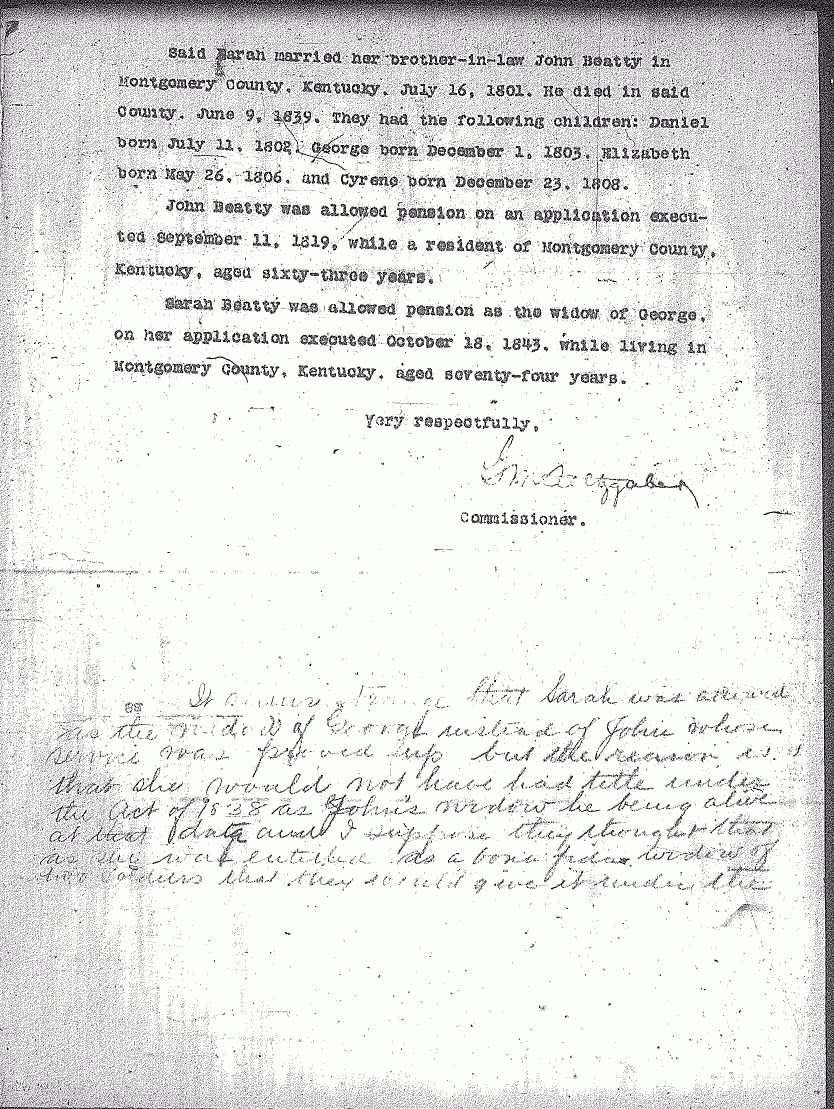 Said Sarah married her brother-in-law John Beatty in
Montgomery County, Kentucky, July 16, 1801. He died in said
County, June 9, 1839. They had the following children: Daniel
born July 11, 1802, George born December 1, 1803, Elizabeth
born May 26, 1806, and Cyrene born December 23, 1808.
John Beatty was allowed pension on an application execu-
ted September 11, 1819, while a resident of Montgomery County,
Kentucky, aged sixty-three years.
Sarah Beatty was allowed pension as the widow of George,
on her application executed October 18, 1843, while living in
Montgomery County, Kentucky, aged seventy-four years.
Very respectfully,
Commissioner.
It seems strange that Sarah was allowed
as the widow of George instead of John whose
service was proved up but the reason is
that she would not have had title under
the Act of 1838 as John's widow he being alive
at that date and I suppose they thought that
as she was entitled as a bona fide widow of
two soldiers that they would give it under the